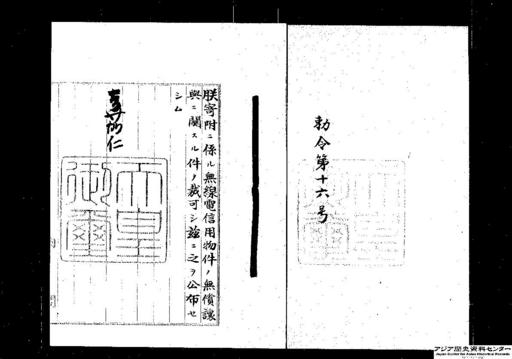 勅令第十六号
朕寄附ニ係ル無線電信用物件ノ無償讓
與ニ關スル件ヲ裁可シ茲ニ之ヲ公布セ
シム
嘉仁
天皇
御璽
アジア歴史資料センター
Japan Center for Asian Historical Records